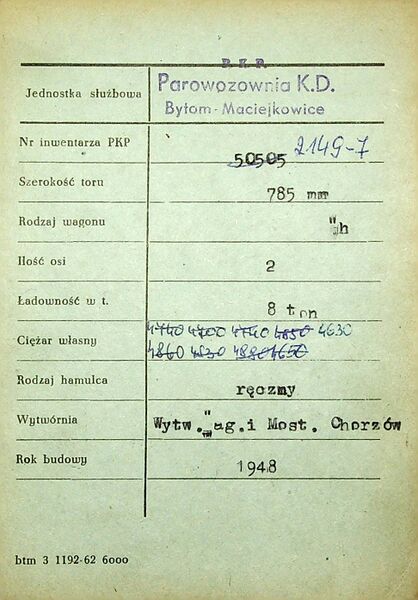 P.K.P.
Jednostka służbowa Parowozownia K.D.
Bytom-Maciejkowice
Nr inwentarza PKP 50505 2149-7
Szerokość toru 785 mm
Rodzaj wagonu Wh
Ilość osi 2
Ładowność w t. 8 ton
Ciężar własny 4740 4700 4740 4850 4630
4860 4830 4880 4650
Rodzaj hamulca ręczny
Wytwórnia Wytw. Wag. i Most. Chorzów
Rok budowy 1948
btm 3 1192-62 6000